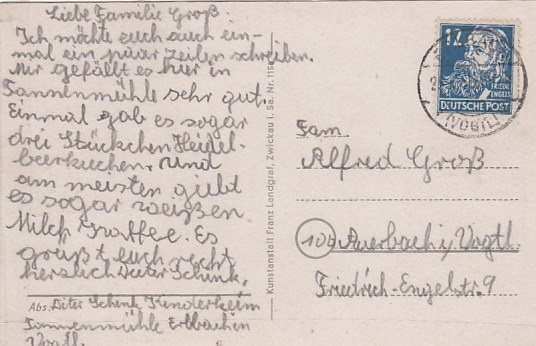 Liebe Familie Groß:
Ich möchte euch auch ein-
mal ein paar Zeilen schreiben.
Mir gefällt es hier in
Tannenmühle sehr gut.
Einmal gab es sogar
drei Stückchen Heidel-
beerkuchen. Und
am meisten giebt
es sogar weißen
Milch Kaffee. Es
grüßt euch recht
herzlich Dieter Schink.
Abs. Dieter Schink Kinderheim
Tannenmühle Erlbach in
Vogtl.
Kunstanstalt Franz Landgraf, Zwickau i. Sa. Nr. 116
12
FRIEDR. ENGELS
DEUTSCHE POST
(VOGTL)
Fam.
Alfred Groß
(10b) Auerbach i/ Vogtl.
Friedrich-Engelstr. 9